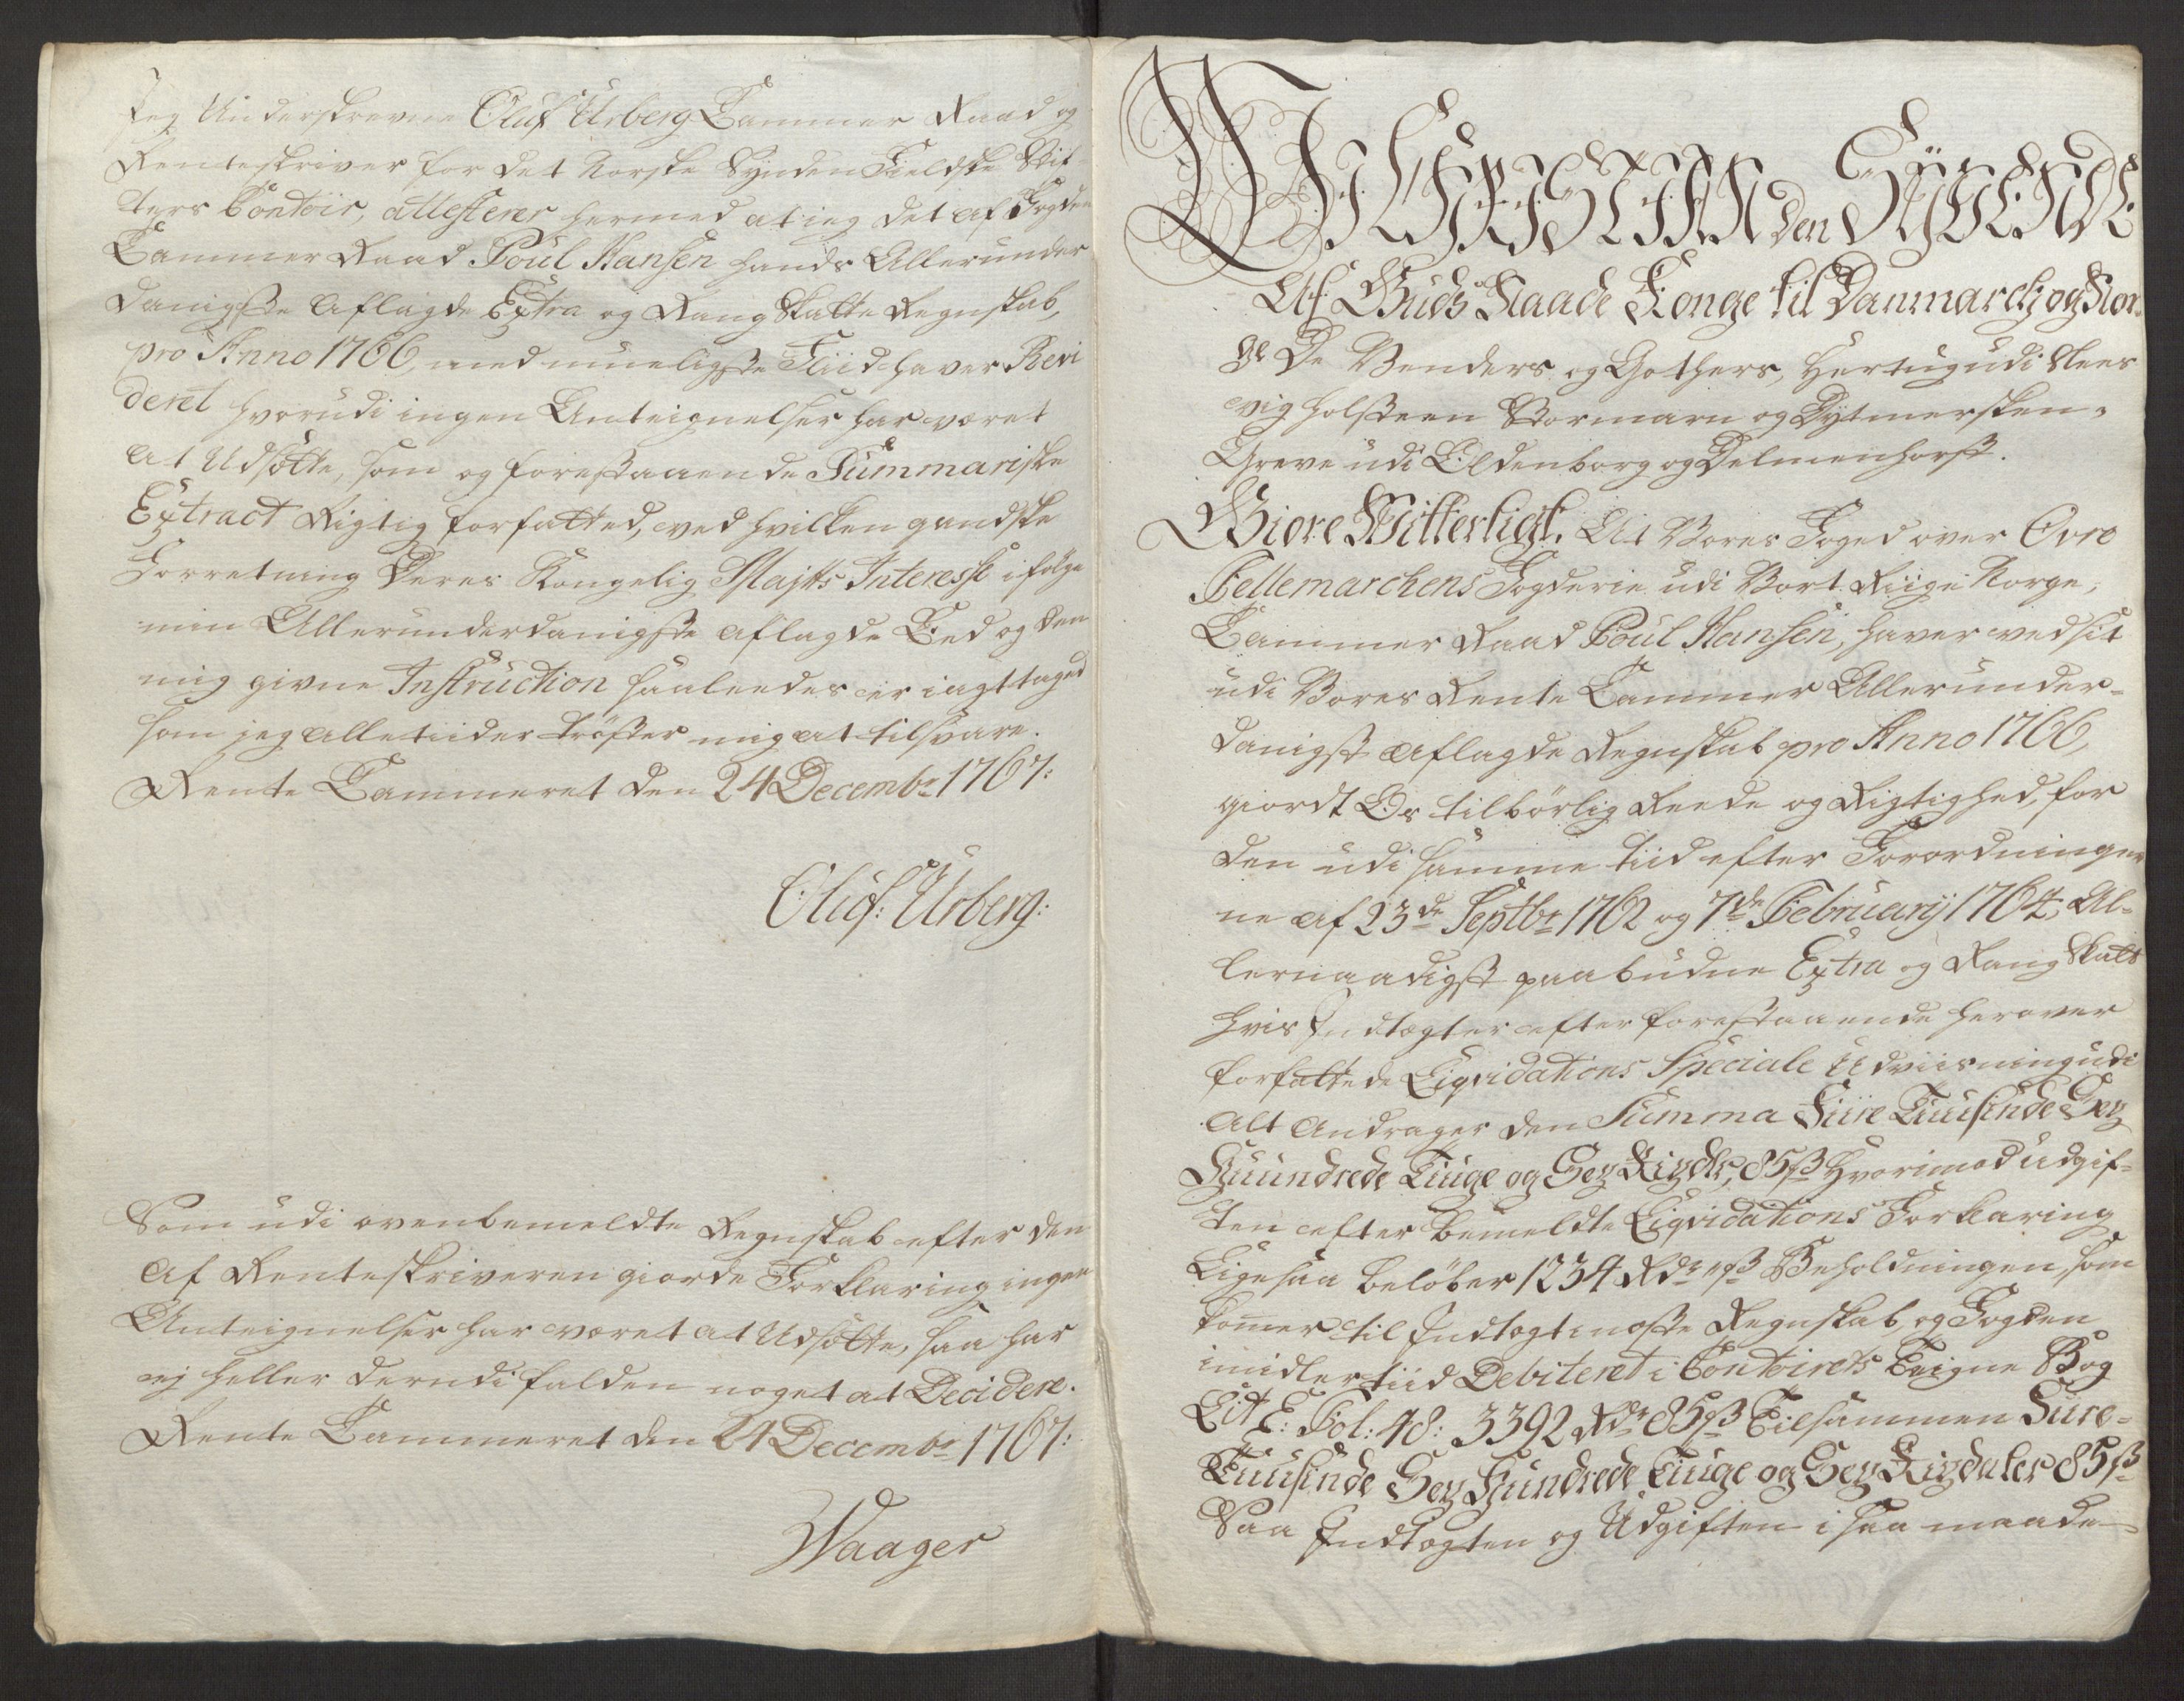 Jeg Underskrevne Oluf Urberg Cammer Raad og
Renteskriver for det Norske Synden Fieldske Stif-
ters Contoir, attesterer hermed at ieg det af Fogden
Cammer Raad Poul Hansen hands Allerunder
danigste aflagde Extra og Rang Skatte Regnskab,
pro Anno 1766, med mueligste Fliid haver Revi
deret hvorudi ingen Anteignelser har været
at Udsætte, som og forestaaende Summariske
Extract Rigtig forfatted, ved hvilken gandske
Forretning Deres Kongelig Maÿtts Interesse i følge
min Allerunderdanigste aflagde Eed og den
mig givne Instruction saaleedes er iagttaged
som jeg alletiider trøster mig at tilsvare.
Rente Cammeret den 24 Decembr 1767:
Oluf: Urberg:
Som udi ovenbemeldte Regnskab efter den
af Renteskriveren giorde Forklaring ingen
Anteignelser har været at Udsætte, saa har
ej heller derudi falden noget at Decidere.
Rente Cammeret den 24 Decembr 1767:
Waager
Wi CHRISTIAN den SYVENDE
Af Guds Naade Konge til Danmarck og Nor-
ge De Venders og Gothers, Hertug udi Slees
vig Holsteen Stormarn og Dytmersken.
Greve udi Oldenborg og Delmenhorst.
Giøre Witterligt. At Vores Foged over Øvre
Tellemarchens Fogderie udi Vort Riige Norge,
Cammer Raad Poul Hansen, haver ved sit
udi Vores Rente Cammer Allerunder-
danigst aflagde Regnskab pro Anno 1766,
giordt Os tilbørlig Reede og Rigtighed, for
den udi samme tiid efter Forordninger
ne af 23de Septbr 1762 og 7de Februarij 1764, Al-
lernaadigst paabudne Extra og Rang Skatt
hvis Indtægter efter forestaaende herover
forfattede Liqvidations Speciale Udviisning udi
alt andrager den Summa Fiire Tuusinde Sex
Huundrede Tiuge og Sex Rixdlr, 85 s Hvorimod udgif-
ten efter bemeldte Liqvidations Forklaring
Ligesaa beløber 1234 Rdr s Beholdningen, som
kommer til Indtægt i næste Regnskab, og Fogden
imidlertiid Debiteret i Contoirets Teigne Bog
Lit E: Fol: 48: 3392 Rdr 85 s Tilsammen Fiire-
Tuusinde Sex Hundrede Tiuge og Sex Rixdaler 85 s
Saa Indtægten og Udgiften i saa maade